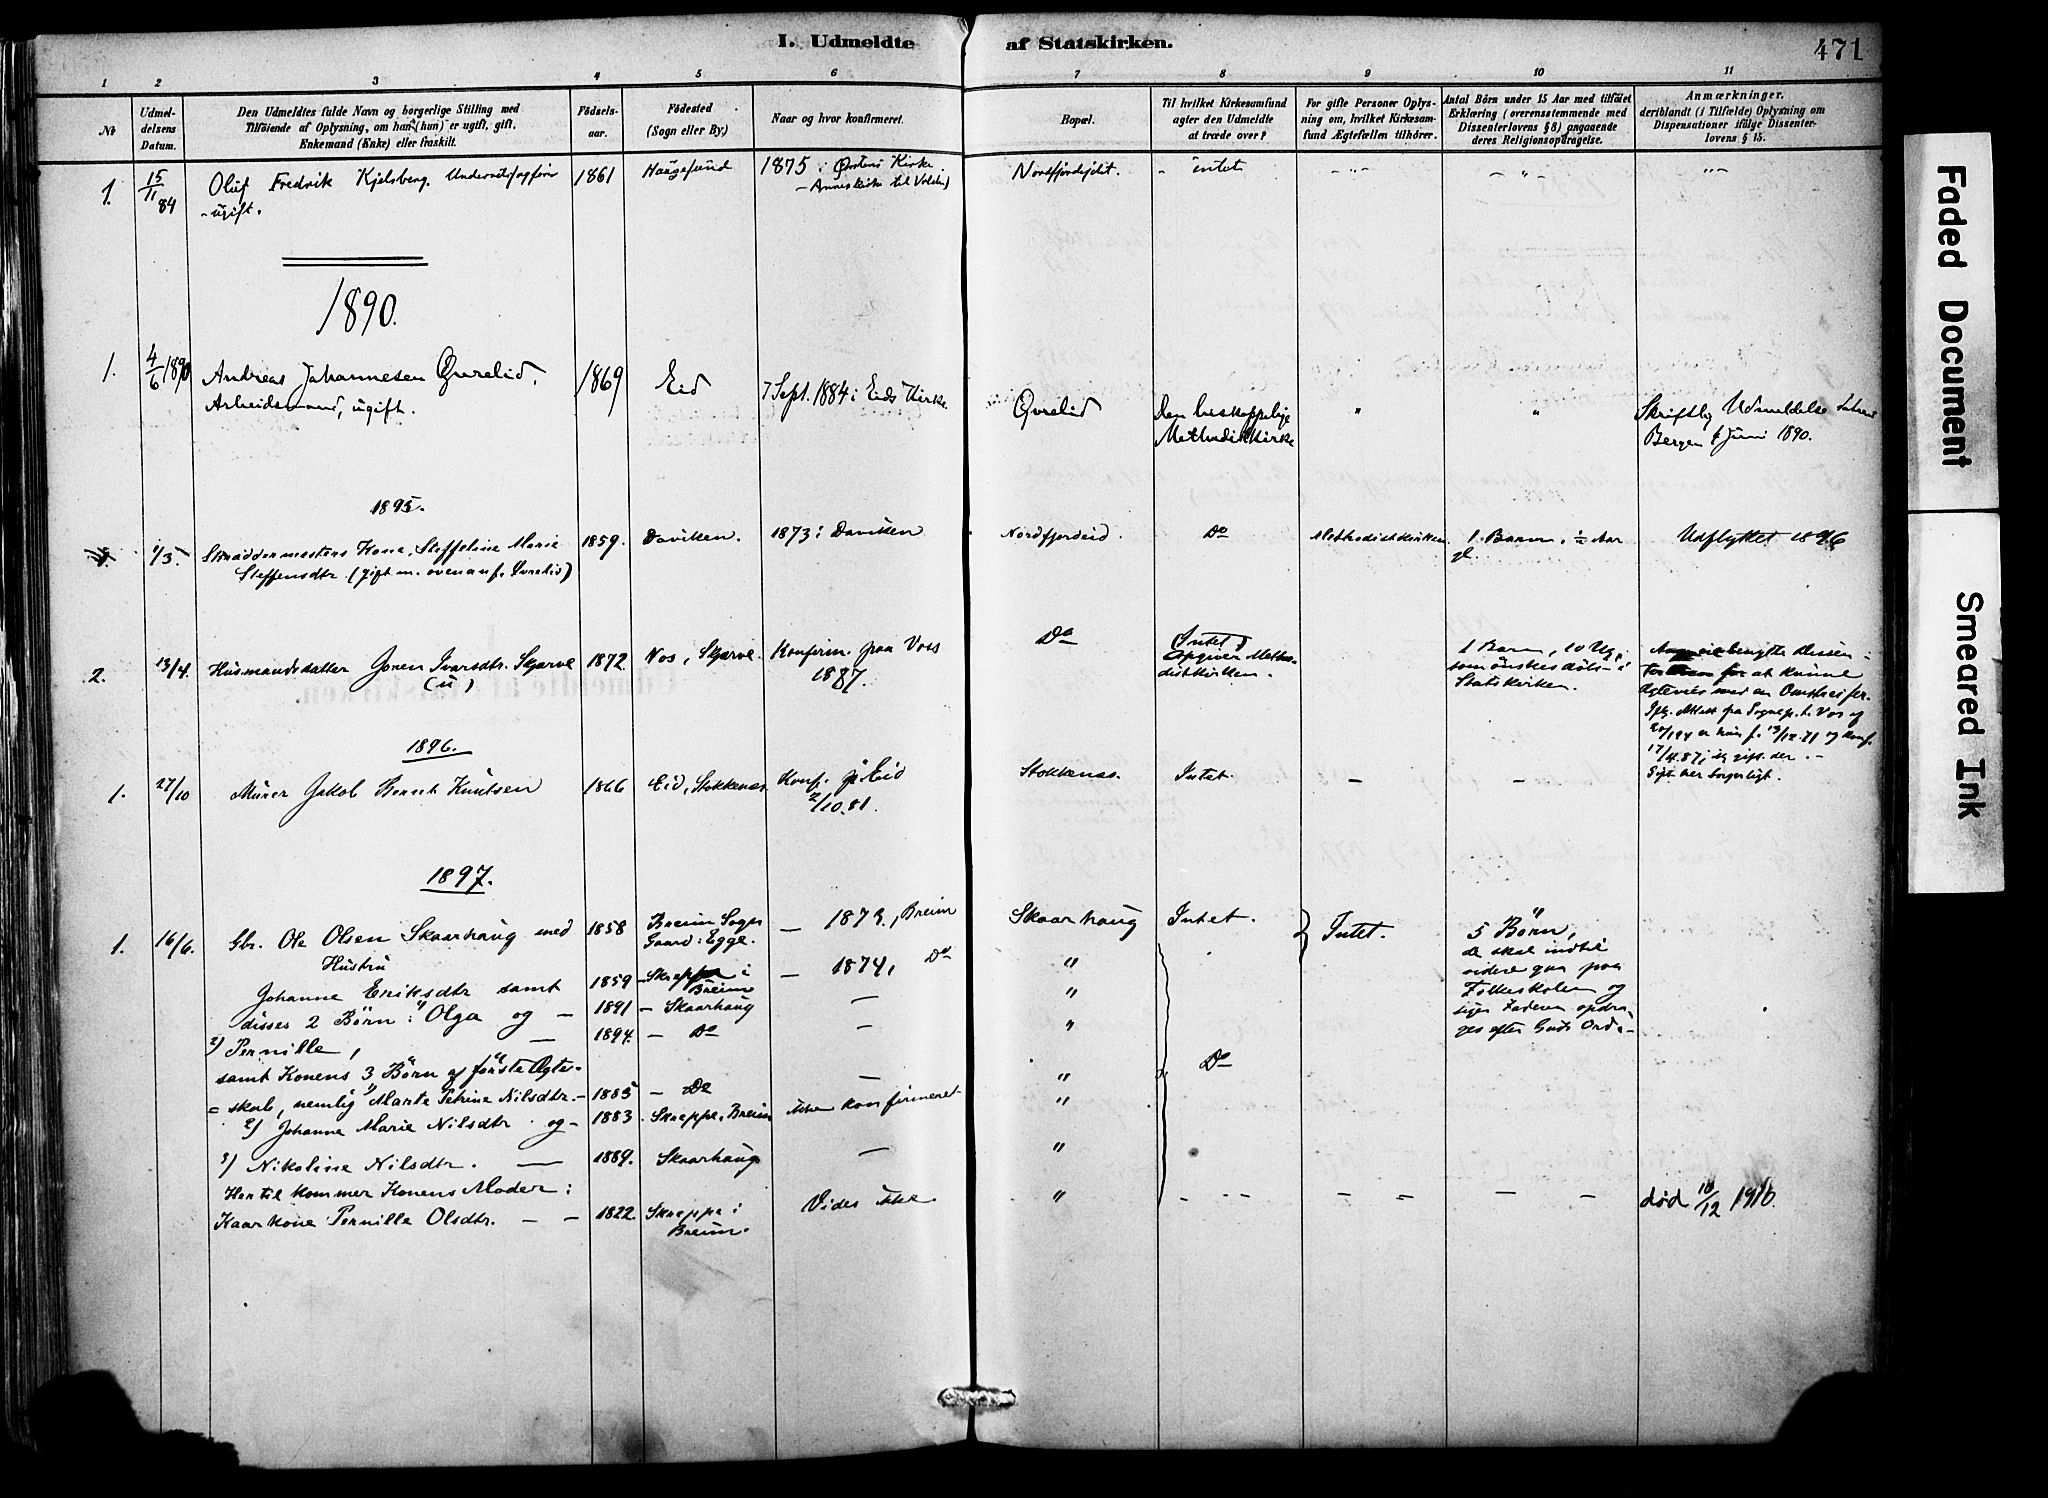 I. Udmeldte af Statskirken.
471
1 2 3 4 5 6 7 8 9 10 11
No
Udmeldelsens Datum.
Den Udmeldtes fulde Navn og borgerlige Stilling med
Tilföiende af Oplysning, om han (hun) er ugift, gift,
Enkemand (Enke) eller fraskilt.
Födselsaar.
Födested
(Sogn eller By)
Naar og hvor konfirmeret.
Bopæl.
Til hvilket Kirkesamfund
agter den Udmeldte
at træde over?
For gifte Personer Oplysning
om, hvilket Kirkesamfund
Ægtefællen tilhörer.
Antal Börn under 15 Aar med tilföiet
Erklæring (overensstemmende med
Dissenterlovens § 8) angaaende
deres Religionsopdragelse.
Anmærkninger,
deriblandt (i Tilfælde) Oplysning om
Dispensationer ifölge Dissenterlovens § 15.
1. 15/11 84 Oluf Fredrik Kjelsberg. 1861 Haugesund 1875 i Ørstens Kirke Nordfjordejdet. - intet - " - - " - " -
- ugift.
(- Anneskirke til Volden)
1890.
1. 4/6 1890 Andreas Johannesen Qvrelid, 1869 Eid 7 Sept. 1884 i Eids Kirke Qvrelid Den biskoppelige " " Skriftlig Udmeldelse
Arbeidsmand, ugift.
Methodistkirke
Bergen 4 Juni 1890.
1895.
1/3. Skræddermesters Kone, Steffeline Marie 1859. Daviken. 1873 i Daviken Nordfjordeid. Do Methodistkirken 1 Barn, ½ Aar Udflyttet 1896
Steffensdtr. (gift m. ovenanf. Qvrelid)
gl.
2. 13/4. Husmandsdatter Joren Ivarsdtr. Skjerve 1872. Vos, Skjerve. Konfirm. paa Vos Do (Intet) 1 Barn, 10 Ug.,
(u)
1887.
Opgiver Methodistkirken.
som ønskes døbt i
Statskirken.
benytte Dissen-
for at kunne
Ægtevies med en Omstreifer.
1896.
1. 27/10 Murer Jakob Bernt Knutsen 1866 Eid, Stokkenæs. Konf. p. Eid Stokkenæs. Intet. - -
2/10.81.
17/4.87; ej gift der. -
Gift her borgerligt.
1897.
1. 16/6. Gbr. Ole Olsen Skaarhaug med 1858 Breim Sogn 1873, Breim Skaarhaug Intet. Intet. 5 Børn,
Hustru
Gaard: Egge.
de skal indtil
Johanne Eriksdtr samt 1859 - Skreppe i Breim - 1874, Do "
videre gaa paa
disses 2 Børn: 1) Olga og - 1891 - Skaarhaug - "
Folkeskolen og
2) Pernille, - 1894. - Do - "
siger Faderen opdra-
ges efter Guds Ord. -
samt Konens 3 Børn af første Ægte- Do
= skab, nemlig 1) Marte Petrine Nilsdtr. - 1885 - Do - "
2) Johanne Marie Nilsdtr. og - 1883. Skreppe, Breim ikke konfirmeret "
3) Nikoline Nilsdtr. - 1889. Skaarhaug - "
Hertil kommer Konens Moder:
Kaarkone Pernille Olsdtr. - - 1822. Skreppe i Breim. Vides ikke. " - " - - - - - død 10/12 1910.
Faded Document
Smeared Ink